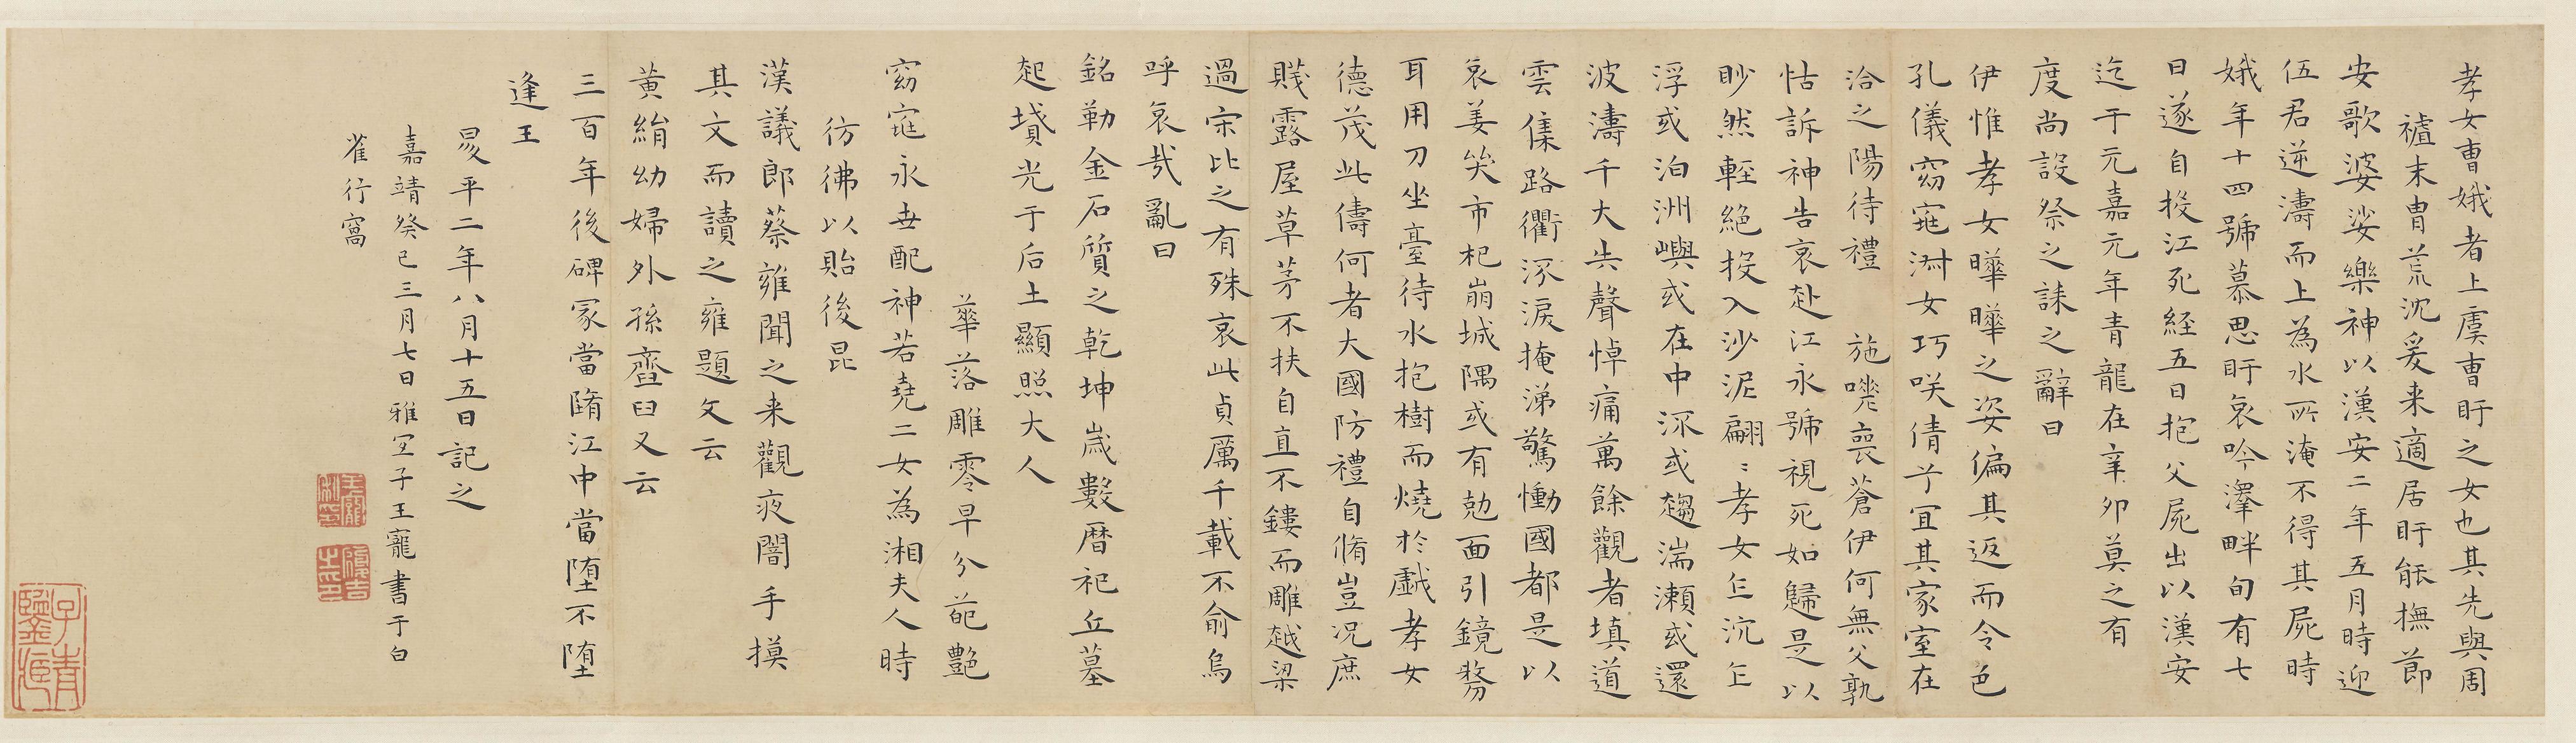 孝女曹娥者上虞曹盱之女也其先與周
禃末胄荒沈爰来適居盱能撫節
安歌婆娑樂神以漢安二年五月時迎
伍君逆濤而上為水所淹不得其屍時
娥年十四號慕思盱哀吟澤畔旬有七
日遂自投江死経五日抱父屍出以漢安
迄于元嘉元年青龍在辛卯莫之有
度尚設祭之誄之辭曰
伊惟孝女曄曄之姿偏其返而令色
孔儀窈窕淑女巧咲倩兮宜其家室在
洽之陽待禮 施嗟喪蒼伊何無父孰
怙訴神告哀赴江永號視死如歸是以
眇然輕絕投入沙泥翩〻孝女乍沉乍
浮或泊洲嶼或在中流或趨湍瀬或還
波濤千夫失聲悼痛萬餘觀者填道
雲集路衢流淚掩涕驚慟國都是以
哀姜哭市杞崩城隅或有剋面引鏡剺
耳用刀坐臺待水抱樹而燒於戲孝女
德茂此儔何者大國防禮自脩豈況庶
賤露屋草茅不扶自直不鏤而雕越梁
過宋比之有殊哀此貞厲千載不俞烏
呼哀哉亂曰
銘勒金石質之乾坤歲數曆祀丘墓
起墳光于后土顯照大人
華落雕零早分葩艷
窈窕永世配神若堯二女為湘夫人時
彷彿以貽後昆
漢議郎蔡雍聞之来觀夜闇手摸
其文而讀之雍題文云
黄絹幼婦外孫齏臼又云
三百年後碑冢當墮江中當墮不墮
逢王
昇平二年八月十五日記之
嘉靖癸巳三月七日雅宜子王寵書于白
雀行窩
王履吉印
子青鑒藏